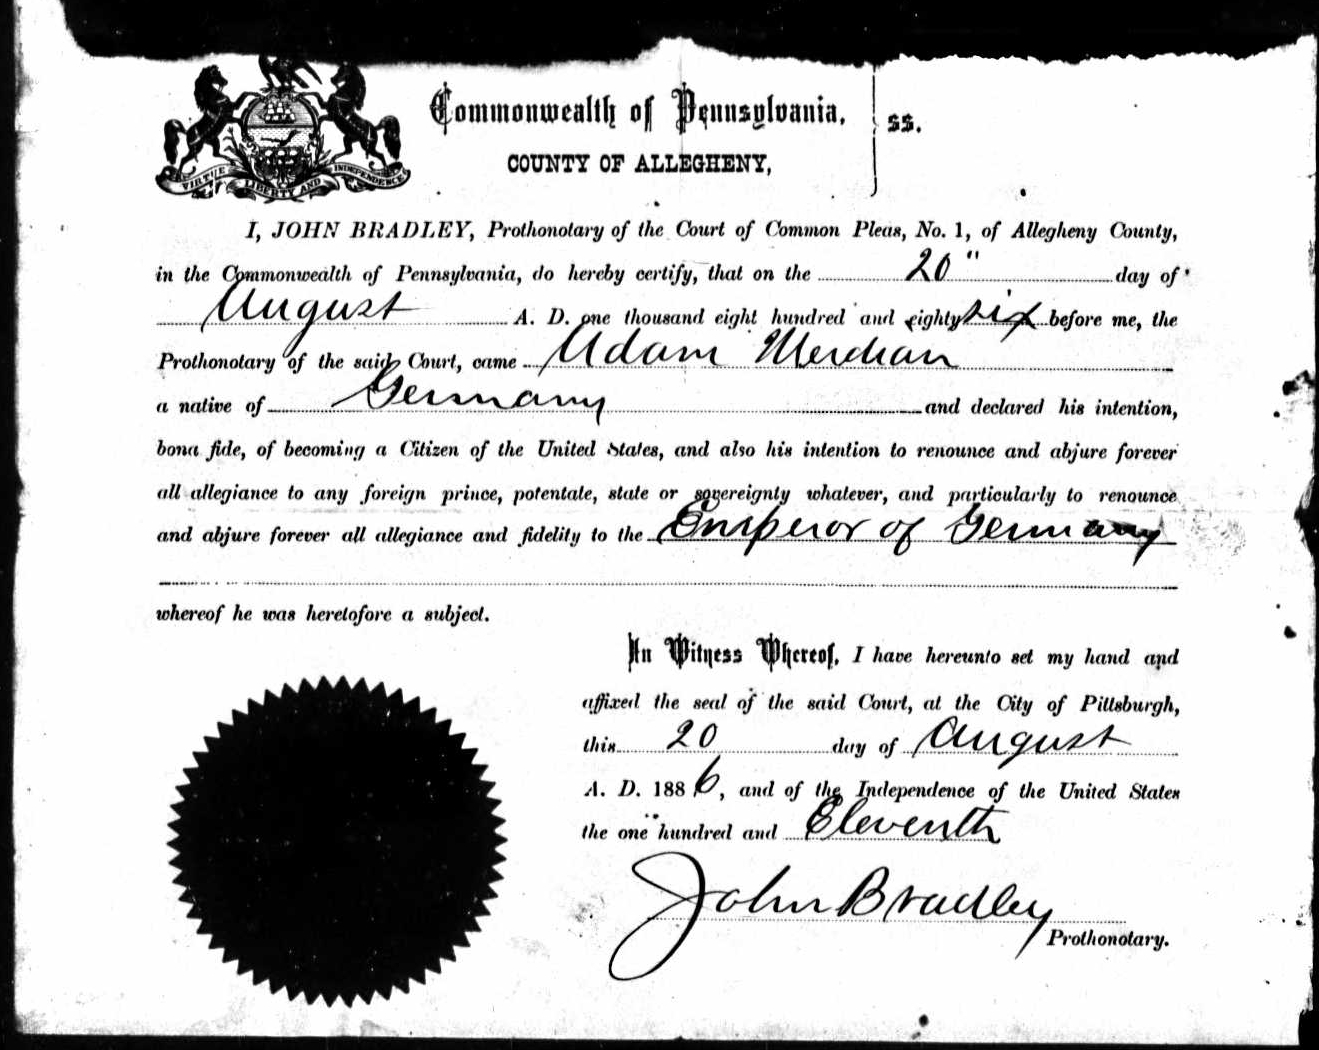 Commonwealth of Pennsylvania,
ss.
COUNTY OF ALLEGHENY,
VIRTUE LIBERTY AND INDEPENDENCE
I, JOHN BRADLEY, Prothonotary of the Court of Common Pleas, No. 1, of Allegheny County,
in the Commonwealth of Pennsylvania, do hereby certify, that on the 20" day of
August A. D. one thousand eight hundred and eighty six before me, the
Prothonotary of the said Court, came Adam
a native of Germany and declared his intention,
bona fide, of becoming a Citizen of the United States, and also his intention to renounce and abjure forever
all allegiance to any foreign prince, potentate, state or sovereignty whatever, and particularly to renounce
and abjure forever all allegiance and fidelity to the Emperor of Germany
whereof he was heretofore a subject.
In Witness Whereof, I have hereunto set my hand and
affixed the seal of the said Court, at the City of Pittsburgh,
this 20 day of August
A. D. 1886, and of the Independence of the United States
the one hundred and Eleventh
John Bradley
Prothonotary.